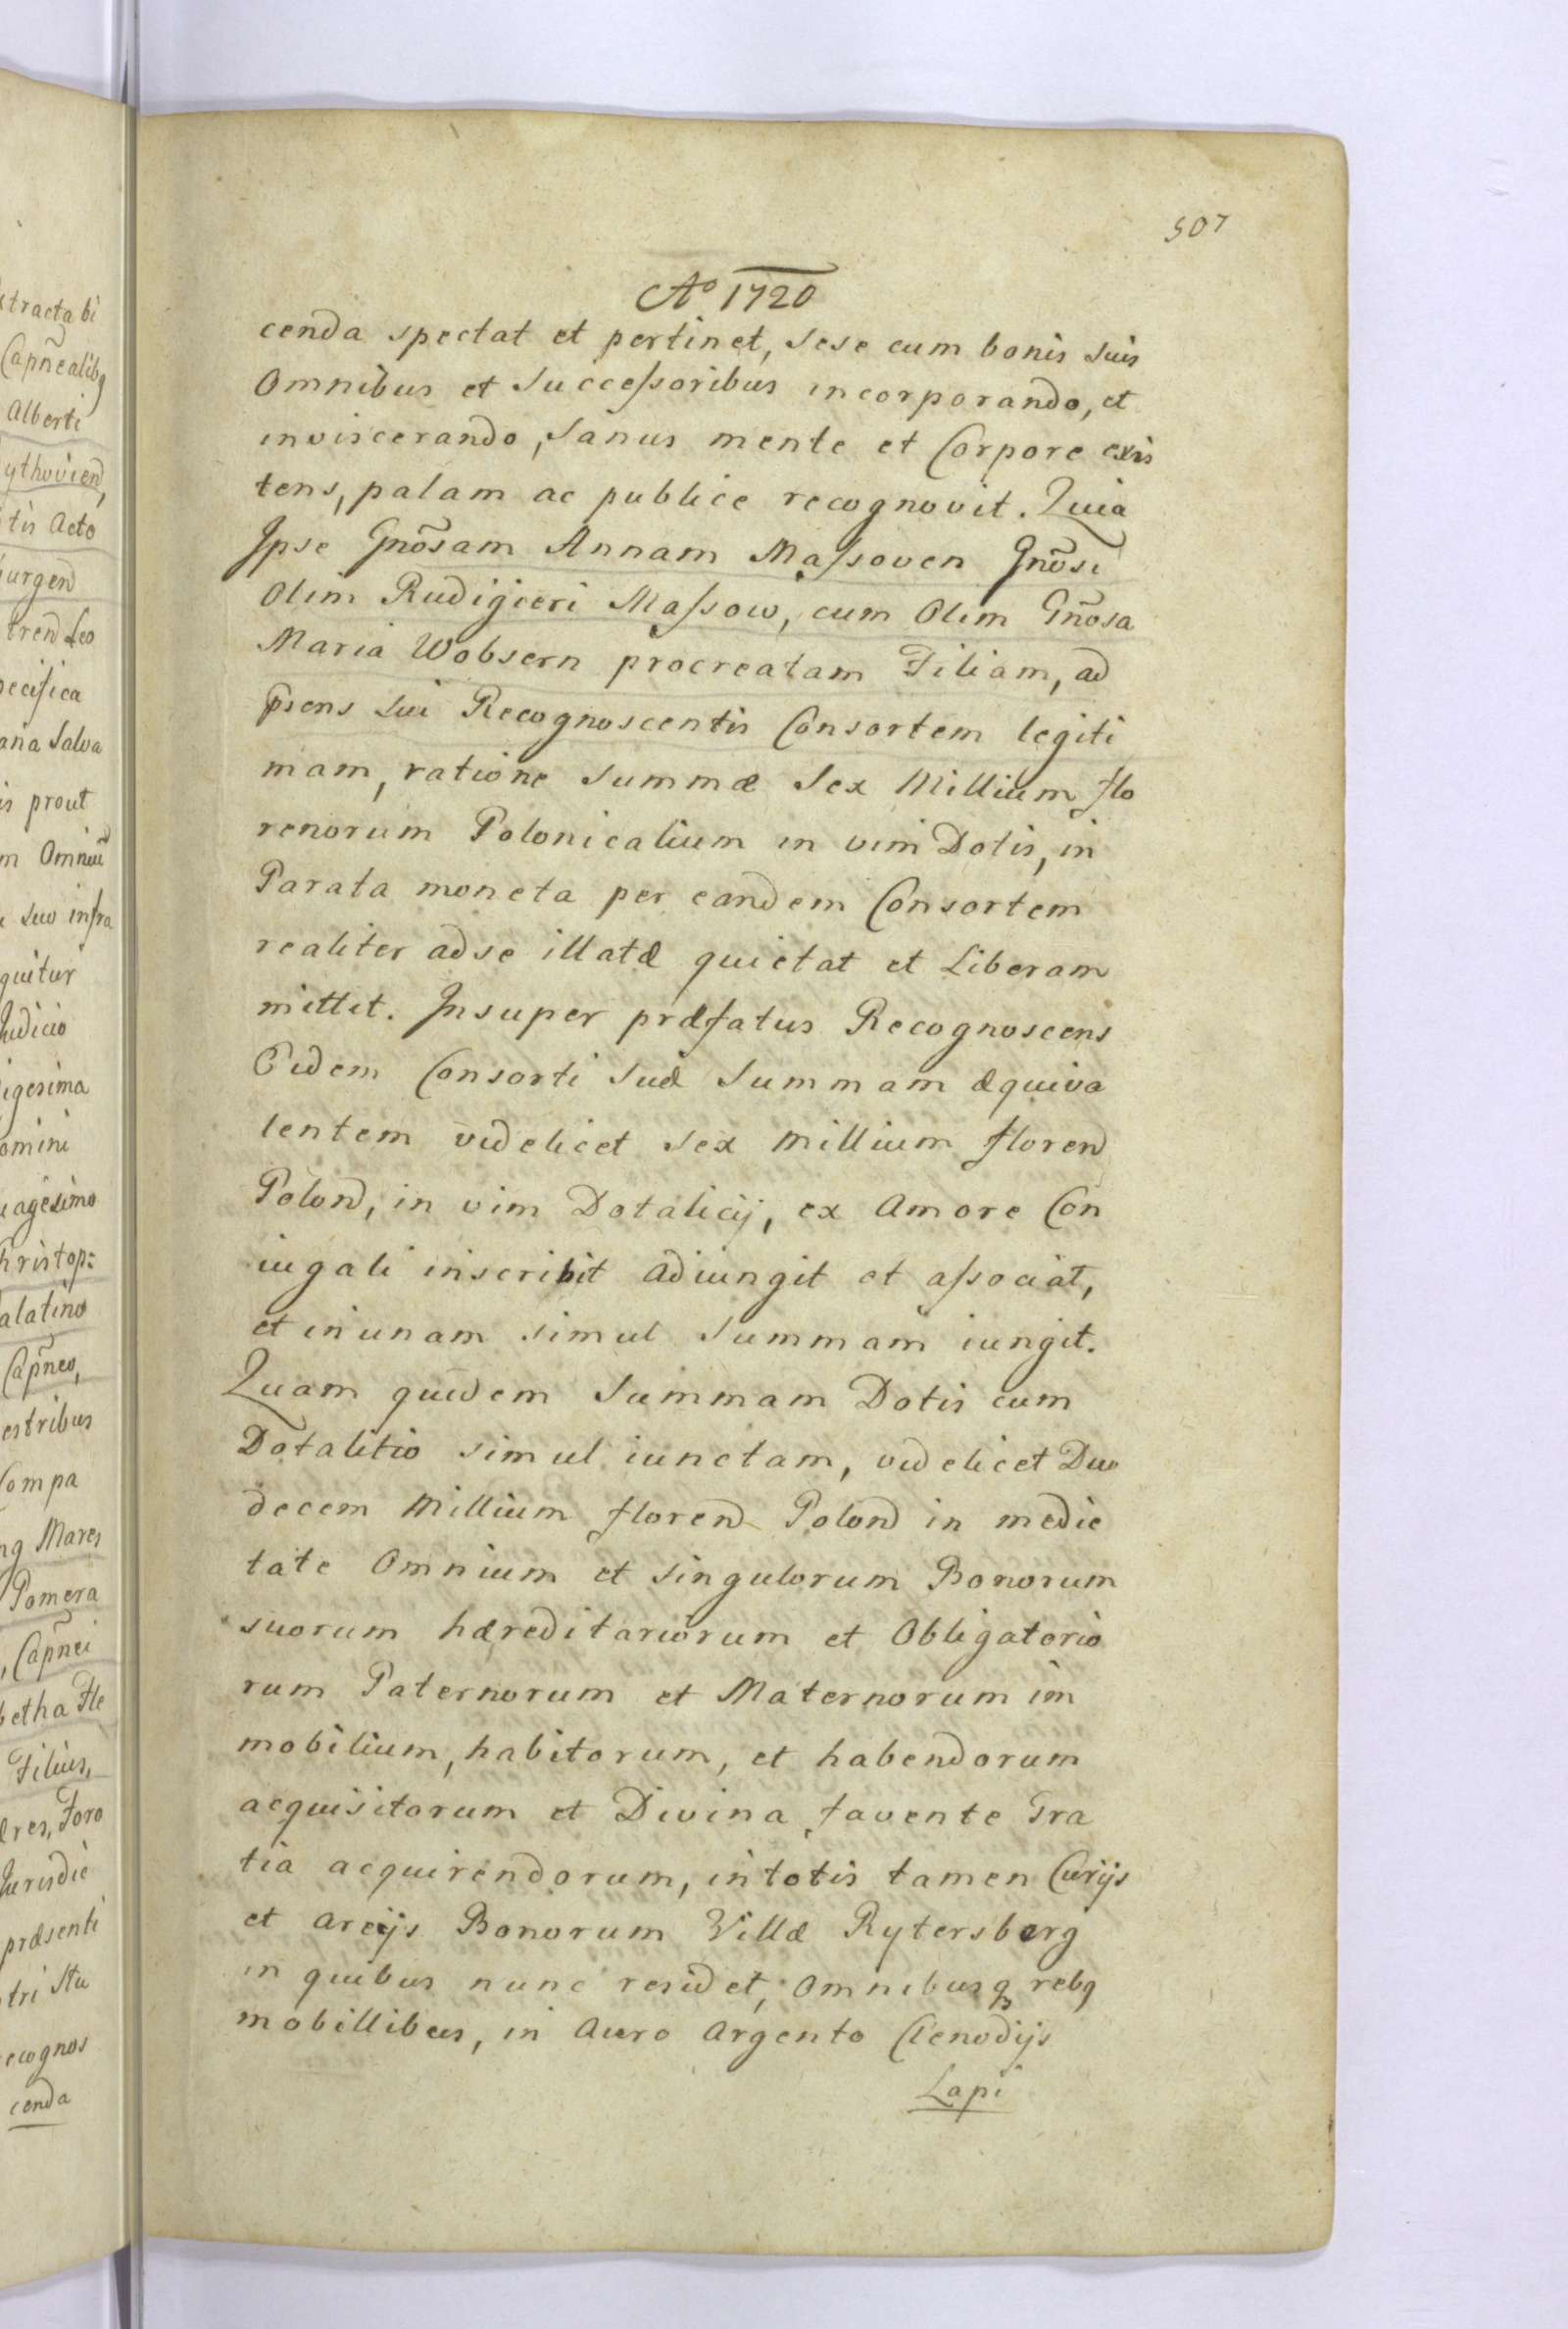 xtracta bi
Capn̄ealibq
Alberti
ythovien,
tis Acto
iurgen
tren Leo
pecifica
ana Salva
is prout
m Omniū
suo infra
quitur
Iudicio
igesima
omini
uagesimo
hristop:
alatino
Capn̄eo,
estribus
Compa
ng Mares
Pomera
, Capn̄ei
betha Fle
Filius,
dres, Foro
Iurisdic
præsenti
tri Stu
ecognos
cenda
507
Aº 1720
cenda spectat et pertinet, sese cum bonis suis
Omnibus et Successoribus incorporando, et
inviscerando, Sanus mente et Corpore exis
tens, palam ac publice recognovit. Quia
Ipse Gnōsam Annam Massoven Gnōsi
Olim Rudigieri Massow, cum Olim Gnōsa
Maria Wobsern procreatam Filiam, ad
p̄sens sui Recognoscentis Consortem legiti
mam, ratione Summæ Sex Millium flo
renorum Polonicalium in vim Dotis, in
Parata moneta per eandem Consortem
realiter ad se illatæ quietat et Liberam
mittit. Insuper præfatus Recognoscens
Eidem Consorti suæ Summam æquiva
lentem videlicet Sex Millium floren
Polon, in vim Dotalicij, ex Amore Con
iugali inscribit adiungit et associat,
et in unam simul Summam iungit.
Quam quidem Summam Dotis cum
Dotalitio simul iunctam, videlicet Duo
decem Millium floren Polon in medie
tate Omnium et singulorum Bonorum
suorum hæreditariorum et Obligatorio
rum Paternorum et Maternorum im
mobilium, habitorum, et habendorum
acquisitorum et Divina favente Gra
tia acquirendorum, in totis tamen Curijs
et areijs Bonorum Villæ Rytersberg
in quibus nunc residet, Omnibusq rebq
mobillibus, in Auro Argento Clenodijs
Lapi